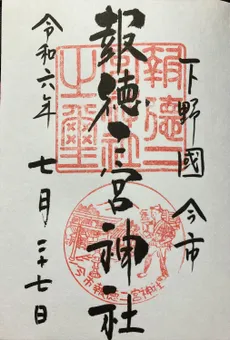 下野國 今市
報徳二宮神社
令和六年 七月 二十七日
報徳二
宮神社
之璽
今市報徳二宮神社